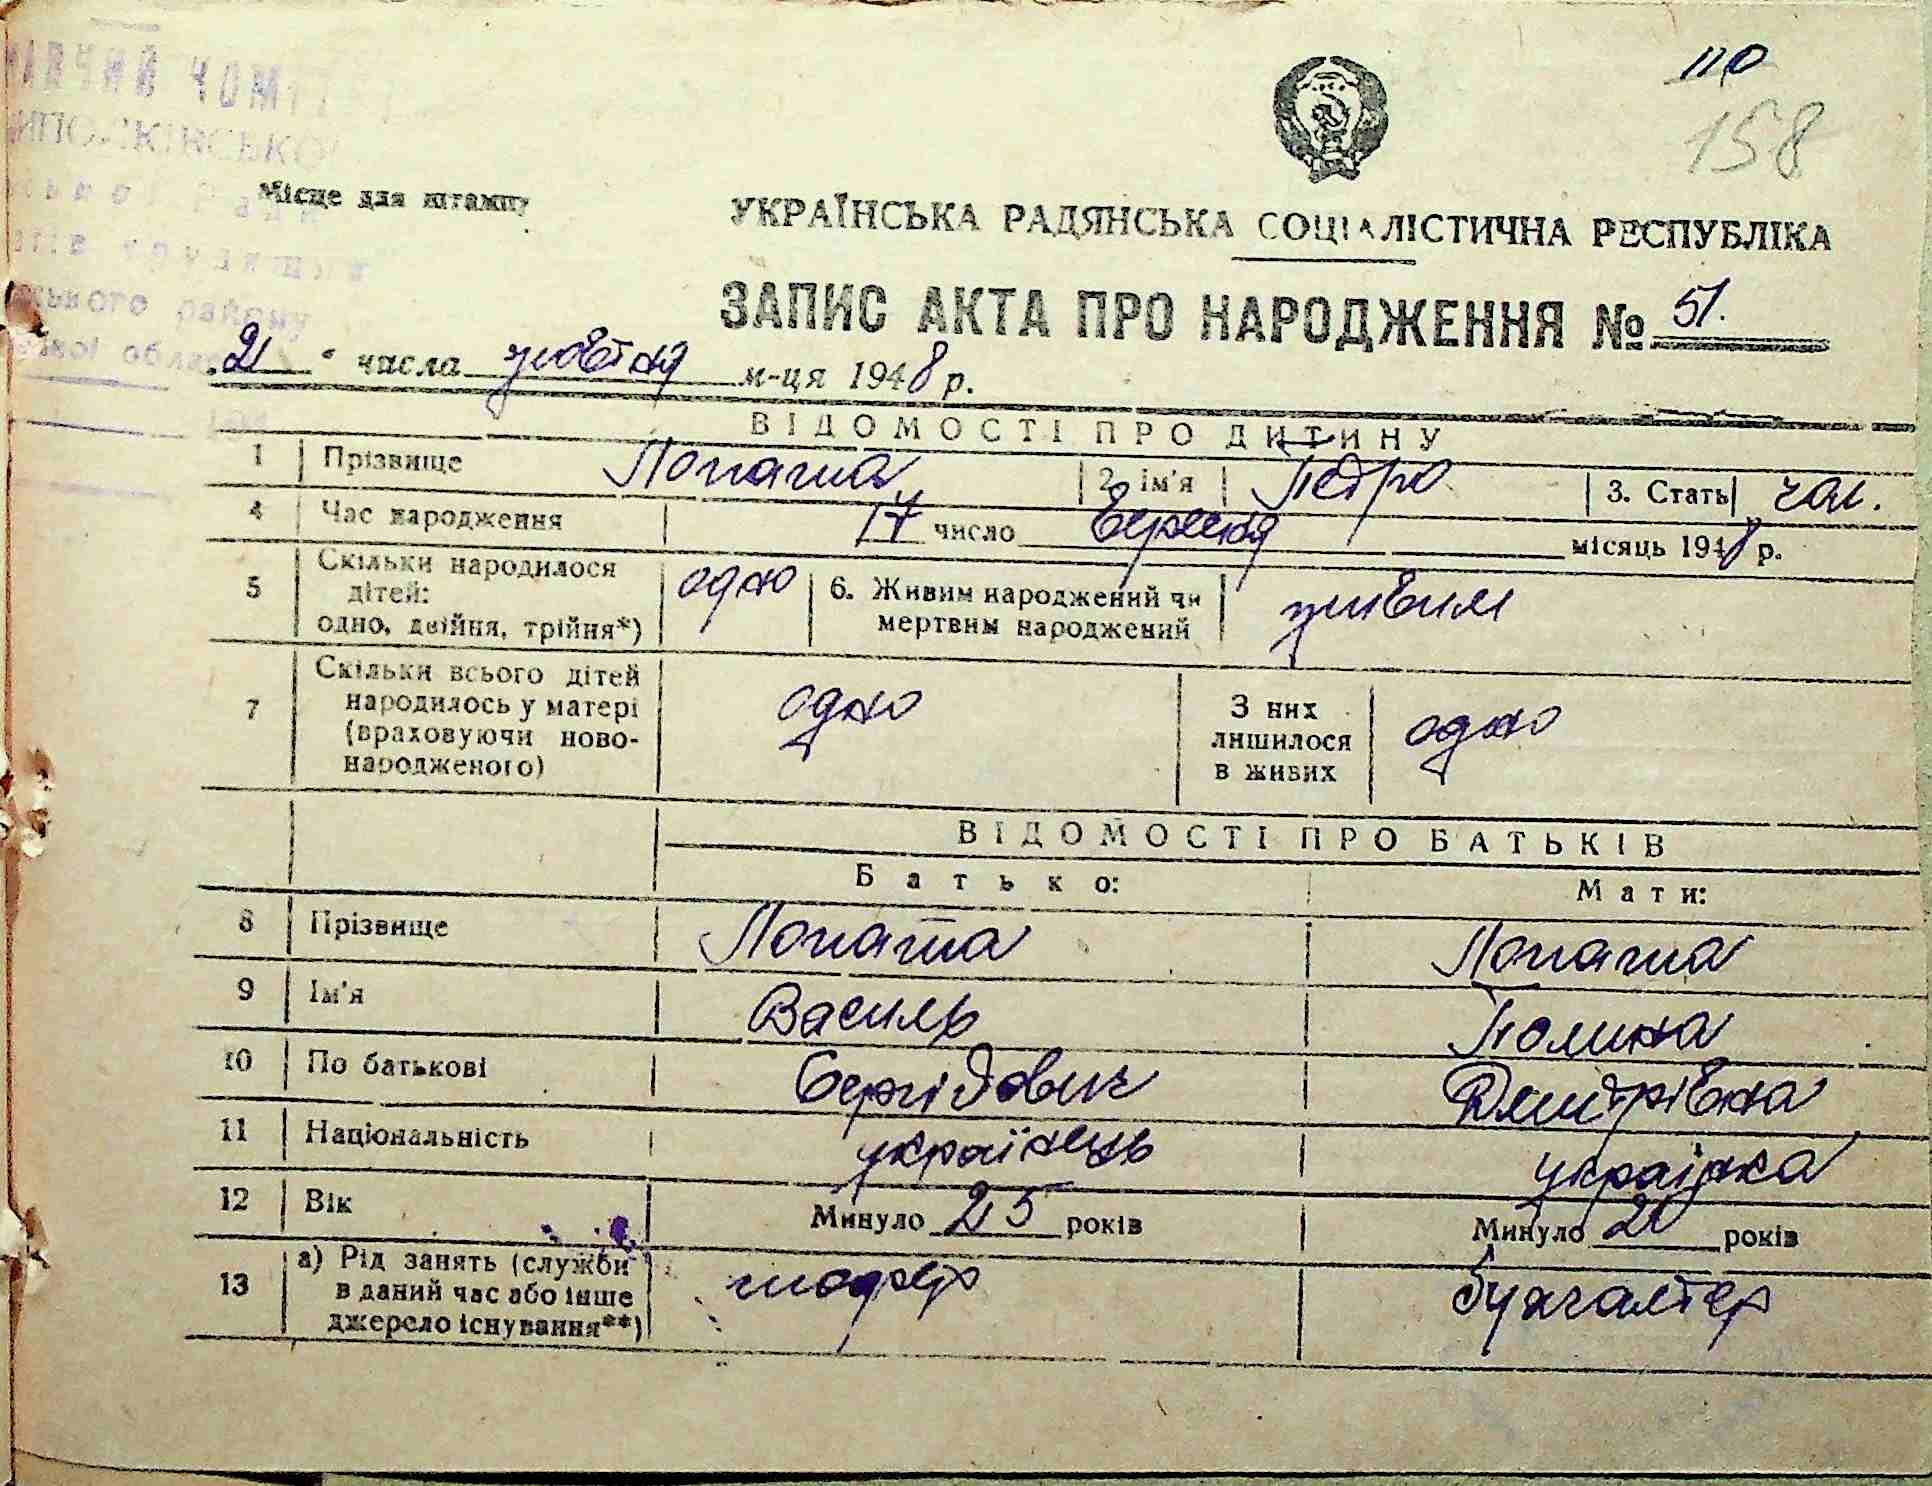 110
158
Місце для штампу
УКРАЇНСЬКА РАДЯНСЬКА СОЦІАЛІСТИЧНА РЕСПУБЛІКА
ЗАПИС АКТА ПРО НАРОДЖЕННЯ № 51.
районy
21 " числа жовтня м-ця 1948 р.
ВІДОМОСТІ ПРО ДИТИНУ
1 Прізвище Лопата 2. ім'я Петро 3. Стать чол.
4 Час народження 17 число березня місяць 1948 р.
5 Скільки народилося дітей: одно, двійня, трійня*) одно 6. Живим народжений чи мертвим народжений живим
7 Скільки всього дітей народилось у матері (враховуючи ново-народженого) одно З них лишилося в живих одно
ВІДОМОСТІ ПРО БАТЬКІВ
Батько: Мати:
8 Прізвище Лопата Лопата
9 Ім'я Василь Полина
10 По батькові Сергійович Дмитрівна
11 Національність українець українка
12 Вік Минуло 25 років Минуло 20 років
13 а) Рід занять (служби в даний час або інше джерело існування**) шофер бухгалтер